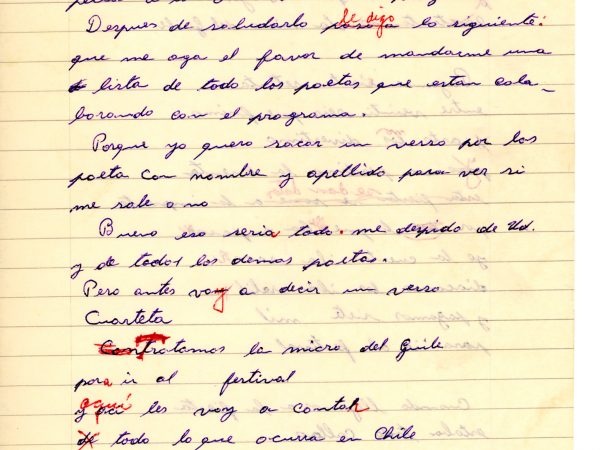 Despues de saludarlo paso a le digo lo siguiente:
que me aga el favor de mandarme una
lista de todo los poetas que estan cola_
borando con el programa.
Porque yo quero sacar un verso por los
poeta con nombre y apellido para ver si
me sale o no
Bueno eso seria todo. me despido de Ud.
y de todos los demas poetas.
Pero antes voy a decir un verso
Cuarteta
Contratamos la micro del Guile
para ir al fertival
aquí
y aca les voy a contar
de todo lo que ocurra en Chile